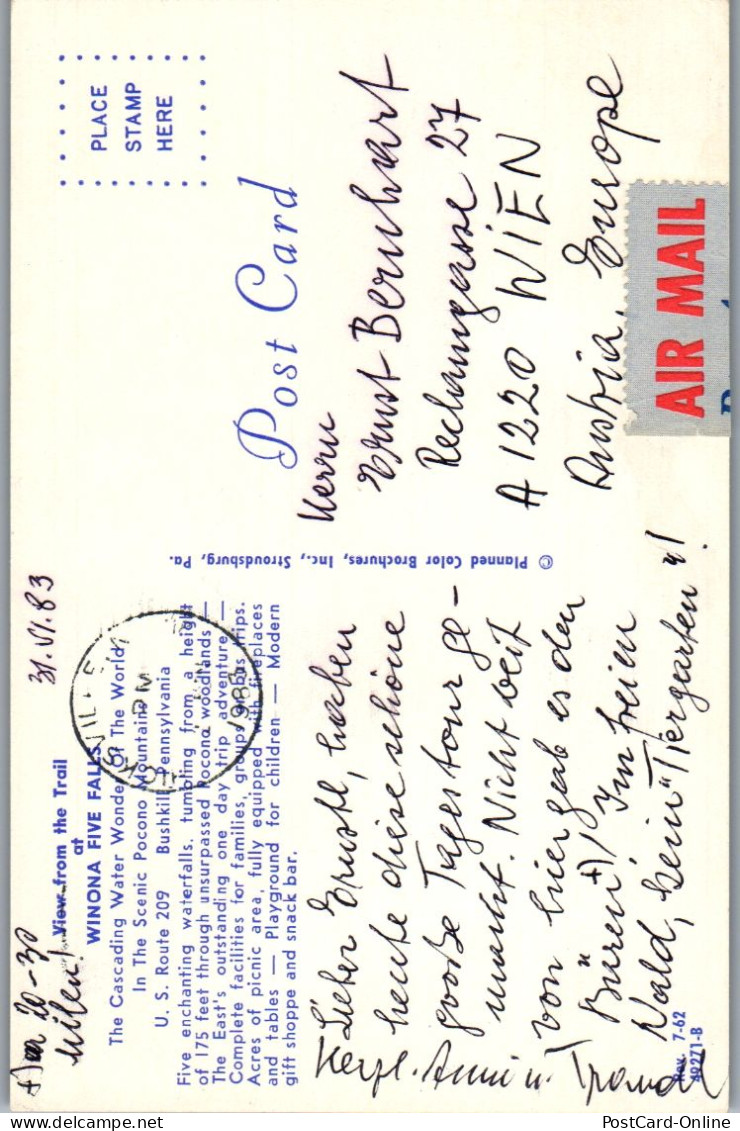 31.VI.83
+) ca 20-30
Milen!
View from the Trail
at
WINONA FIVE FALLS
The Cascading Water Wonder of The World
In The Scenic Pocono Mountains
U. S. Route 209 Bushkill, Pennsylvania
Five enchanting waterfalls, tumbling from a height
of 175 feet through unsurpassed Pocono woodlands —
The East's outstanding one day trip adventure —
Complete facilities for families, groups and bus trips.
Acres of picnic area, fully equipped with fireplaces
and tables — Playground for children — Modern
gift shoppe and snack bar.
HICKSVILLE
PM
1983
Lieber Ernstl, haben
heute diese schöne
große Tagestour ge-
macht. Nicht weit
von hier gab es den
+) Im freien
Wald, kein "Tiergarten"!
Herzl. Anni u. Traudl
Rev. 7-62
49271-B
© Planned Color Brochures, Inc., Stroudsburg, Pa.
PLACE
STAMP
HERE
Post Card
Herrn
Ernst Bernhart
Rechangasse 27
A 1220 WIEN
Austria, Europe
AIR MAIL